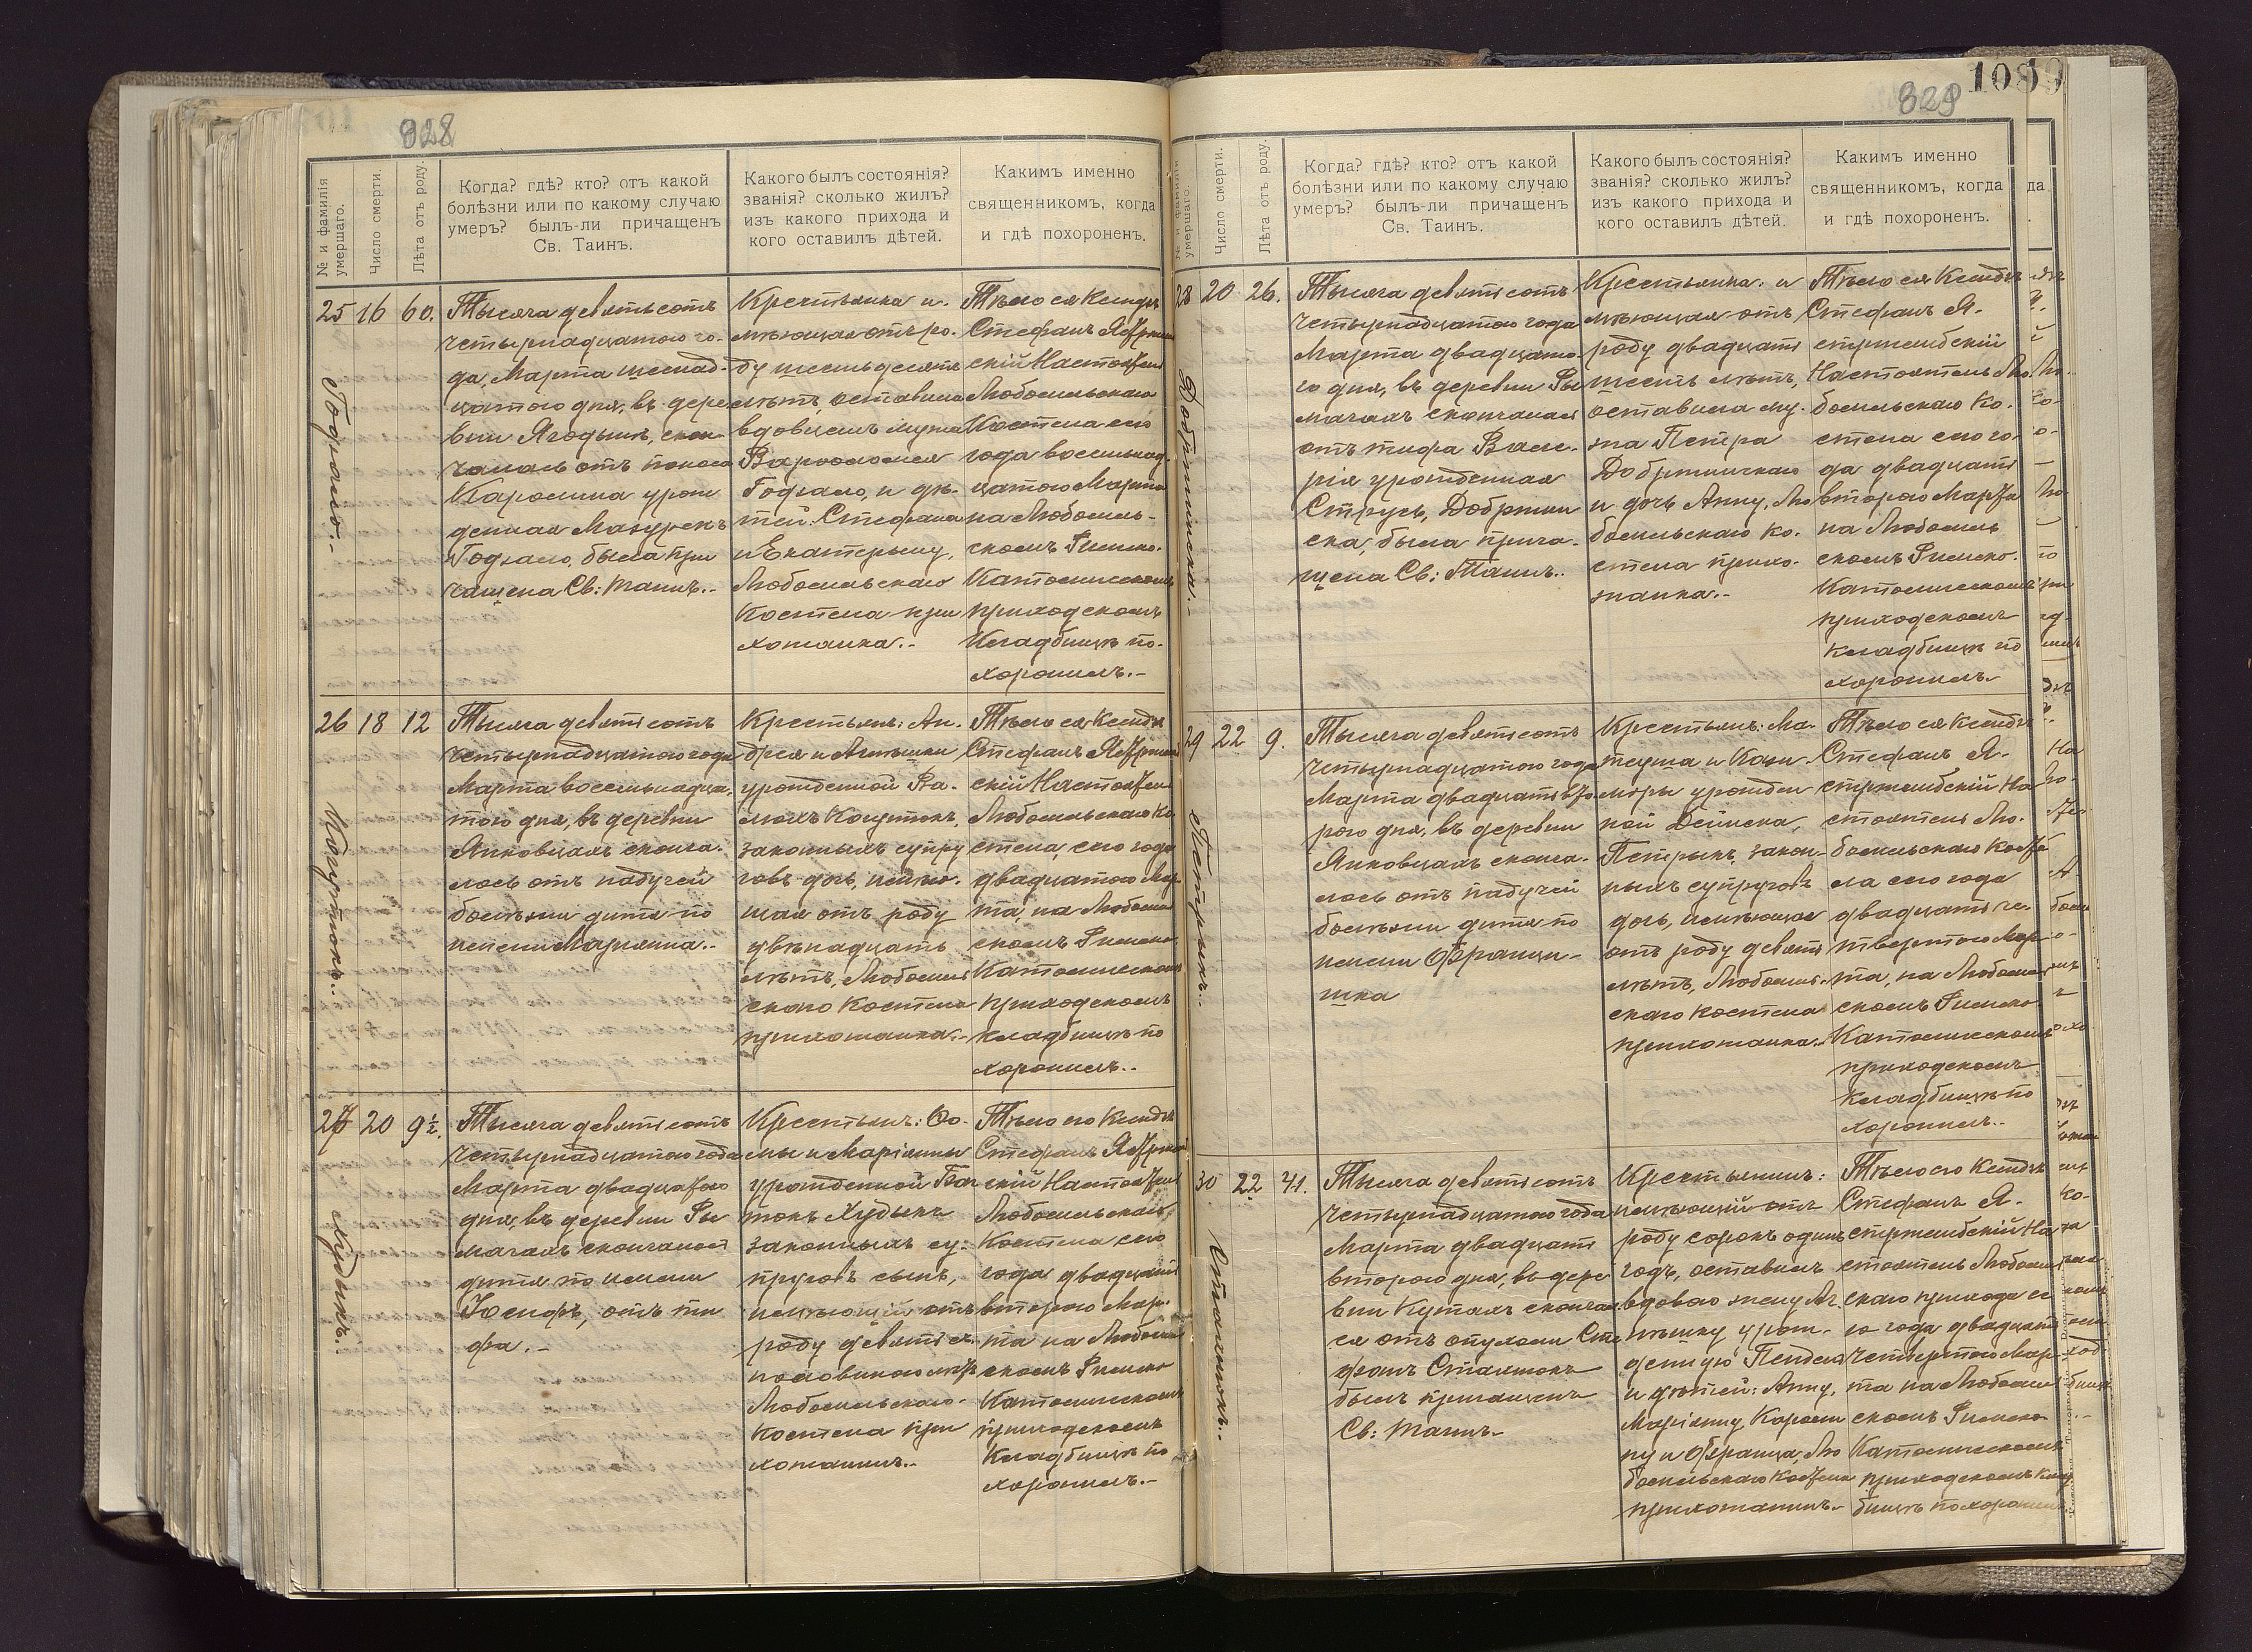 828
№ и фамилія умершаго.
Число смерти.
Лѣта отъ роду.
Когда? гдѣ? кто? отъ какой
болѣзни или по какому случаю
умеръ? былъ-ли причащенъ
Св. Таинъ.
Какого былъ состоянія?
званія? сколько жилъ?
изъ какого прихода и
кого оставилъ дѣтей.
Какимъ именно
священникомъ, когда
и гдѣ похороненъ.
25 16 60.
Тысяча девятьсотъ
четырнадцатого го-
да, Марта шеснад-
цатого дня, въ дере
вни Ягодынѣ, скон-
чалась отъ поноса
Каролина урож
денная Мазурекъ
Годзало, была при
чащена Св: Таинъ.-
Крестьянка и-
мѣющая отъ ро-
ду шесьдесятъ
лѣтъ, оставила
вдовцемъ мужа
Варѳоломея
Годзало, и дѣ-
тей: Стефана
и Екатерину,
Любомльскаго
Костела при
хожанка.-
Тѣло ея Ксендзъ
Стефанъ Ястржем
скій Настоятель
Любомльскаго
Костела сего
года восемнад-
цатого Марта
на Любомль-
скомъ Римско-
Католическомъ
приходскомъ
Кладбищѣ по-
хоронилъ.-
26 18 12
Тысяча девятьсотъ
четырнадцатого года
Марта восемнадца-
того дня, въ деревни
Янковцахъ сконча-
лось отъ падучей
болѣзни дитя по
имени Марянна.-
Крестьянъ: Ан-
дрея и Агнѣшки
урожденной Ва-
законныхъ супру
говъ дочь, имѣю-
щая отъ роду
двѣнадцать
лѣтъ, Любомль
скаго Костела
прихожанка.-
Тѣло ея Ксендзъ
Стефанъ Ястржемб
скій Настоятель
Любомльскаго Ко
стела, сего года
двадцатого Мар
та, на Любомль
скомъ Римско
Католическомъ
приходскомъ
кладбищѣ по
хоронилъ.-
27 20 9½.
Тысяча девятьсотъ
четырнадцатого года
Марта двадцатого
дня, въ деревни Ры
мачахъ скончалось
дитя по имени
Юсифъ, отъ ти
фа.-
Крестьянъ: Ѳо-
мы и Маріанны
законныхъ су-
пруговъ сынъ,
имѣющій отъ
роду девять съ
половиною лѣтъ
Любомльскаго
Костела при
хожанинъ.-
Тѣло его Ксендзъ
Стефанъ Ястржемб
скій Настоятель
Любомльскаго
Костела сего
года двадцать
второго Мар-
та на Любомль
скомъ Римско
Католическомъ
приходскомъ
Кладбищѣ по
хоронилъ.-
829
108
Число смерти.
Лѣта отъ роду.
Когда? гдѣ? кто? отъ какой
болѣзни или по какому случаю
умеръ? былъ-ли причащенъ
Св. Таинъ.
Какого былъ состоянія?
званія? сколько жилъ?
изъ какого прихода и
кого оставилъ дѣтей.
Какимъ именно
священникомъ, когда
и гдѣ похороненъ.
28 20 26.
Тысяча девятьсотъ
четырнадцатого года
Марта двадцато-
го дня, въ деревни Ры
мачахъ скончалась
отъ тифа Вале-
рія урожденная
Струсь, Добрчин
ска, была прича-
щена Св: Таинъ..
Крестьянка и
мѣющая отъ
роду двадцать
шесть лѣтъ,
оставила му-
жа Петра
и дочь Анну, Лю
бомльскаго Ко-
стела прихо-
жанка.-
Тѣло ея Ксендзъ
Стефанъ Я-
стржембскій
Настоятель Лю-
бомльскаго Ко-
стела сего го-
да двадцать
второго Марта
на Любомль
скомъ Римско-
Католическомъ
приходскомъ
Кладбищѣ по
хоронилъ.-
29 22 9.
Тысяча девятьсотъ
четырнадцатого года
Марта двадцать вто
рого дня, въ деревни
Янковцахъ сконча-
лось отъ падучей
болѣзни дитя по
имени Францы-
шка
Крестьянъ: Ма-
теуша и Каги-
миры урожден
ной Дейнека,
Петрыкъ, закон-
ныхъ супруговъ
дочь, имѣющая
отъ роду девять
лѣтъ, Любомль-
скаго Костела
прихожанка.-
Тѣло ея Ксендзъ
Стефанъ Я-
стржембскій На
стоятель Лю-
бомльскаго Косте
ла сего года
двадцать че-
твертого Мар-
та, на Любомль
скомъ Римско
Католическомъ
приходскомъ
Кладбищѣ по
хоронилъ.-
30 22 41.
Тысяча девятьсотъ
четырнадцатого года
Марта двадцать
второго дня, въ дере
вни Кутахъ скончал
ся отъ опухоли Сте
фанъ Сталмокъ
былъ причащенъ
Св: Таинъ.-
Крестьянинъ:
имѣющій отъ
роду сорокъ одинъ
годъ, оставилъ
вдовою жену Аг-
нѣшку урож-
и дѣтей: Анну,
Маріянну, Кароли
ну и Франца, Лю
бомльскаго Костела
прихожанинъ.-
Тѣло его Ксендзъ
Стефанъ Я-
стржембскій На
стоятель Любомль
скаго прихода се
го года двадцать
четвертого Мар-
та на Любомль
скомъ Римско
Католическомъ
приходскомъ Клад
бищѣ похоронилъ